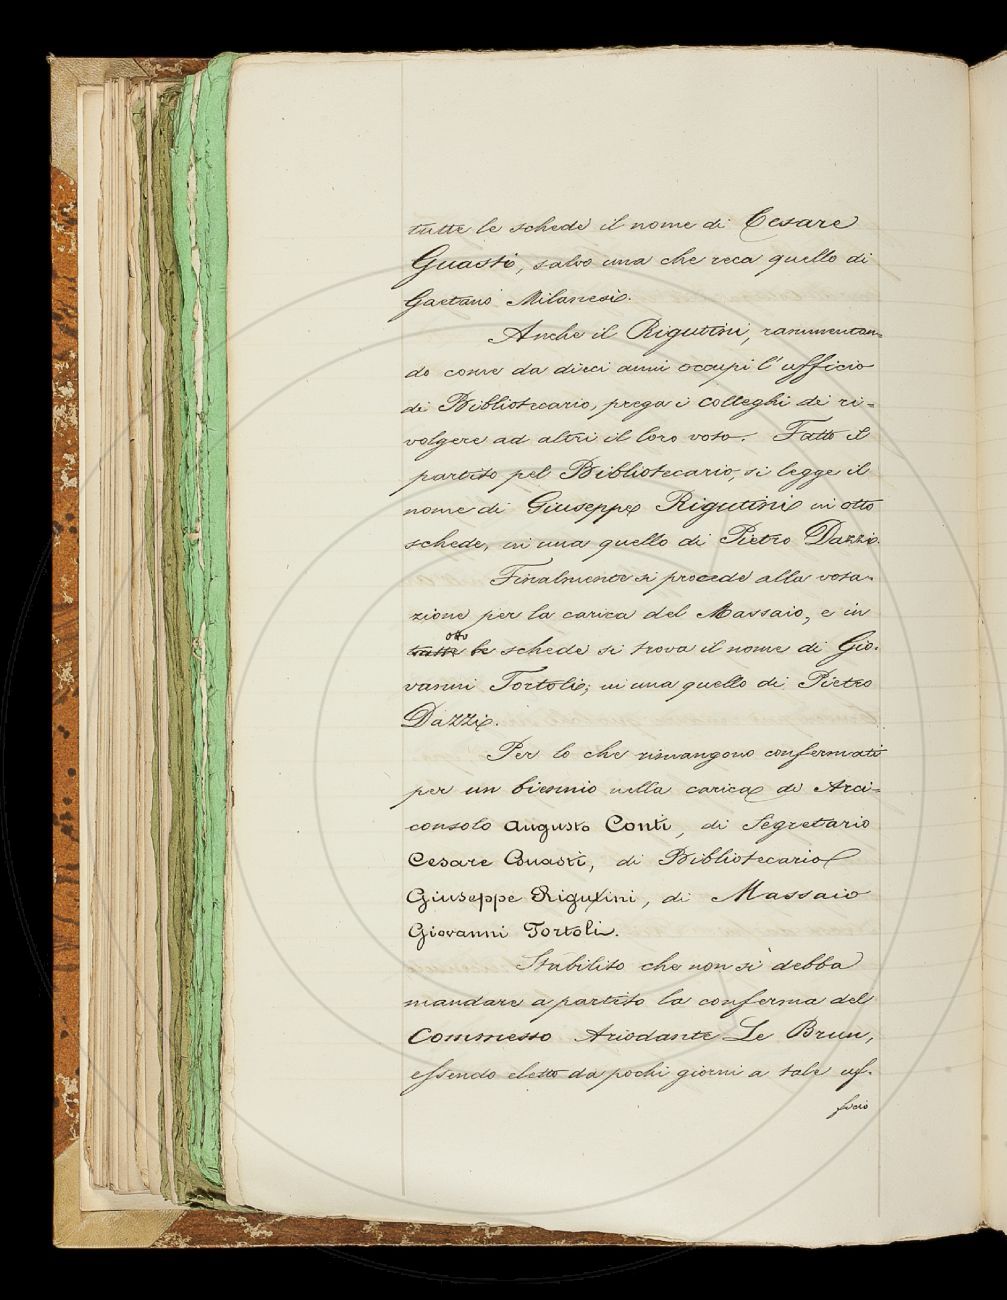 tutte le schede il nome di Cesare
Guasti, salvo una che reca quello di
Gaetano Milanesi.
Anche il Rigutini, rammentan=
do come da dieci anni occupi l'ufficio
di Bibliotecario, prega i colleghi di ri=
volgere ad altri il loro voto. Fatto il
partito pel Bibliotecario, si legge il
nome di Giuseppe Rigutini in otto
schede, in una quello di Pietro Dazzi.
Finalmente si procede alla vota-
zione per la carica del Massaio, e in
otto
tutte le schede si trova il nome di Gio-
vanni Tortoli; in una quello di Pietro
Dazzi.
Per lo che rimangono confermati
per un biennio nella carica di Arci=
consolo Augusto Conti, di Segretario
Cesare Guasti, di Bibliotecario
Giuseppe Rigutini, di Massaio
Giovanni Tortoli.
Stabilito che non si debba
mandare a partito la conferma del
Commesso Ariodante Le Brun,
essendo eletto da pochi giorni a tale uf-
ficio